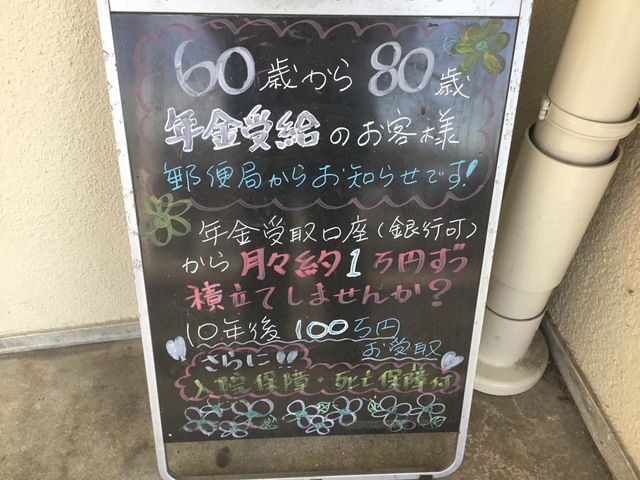 60歳から80歳
年金受給のお客様
郵便局からお知らせです!
年金受取口座(銀行可)
から月々約1万円ずつ
積立てしませんか?
10年後100万円
お受取
さらに!!
入院保障・死亡保障付